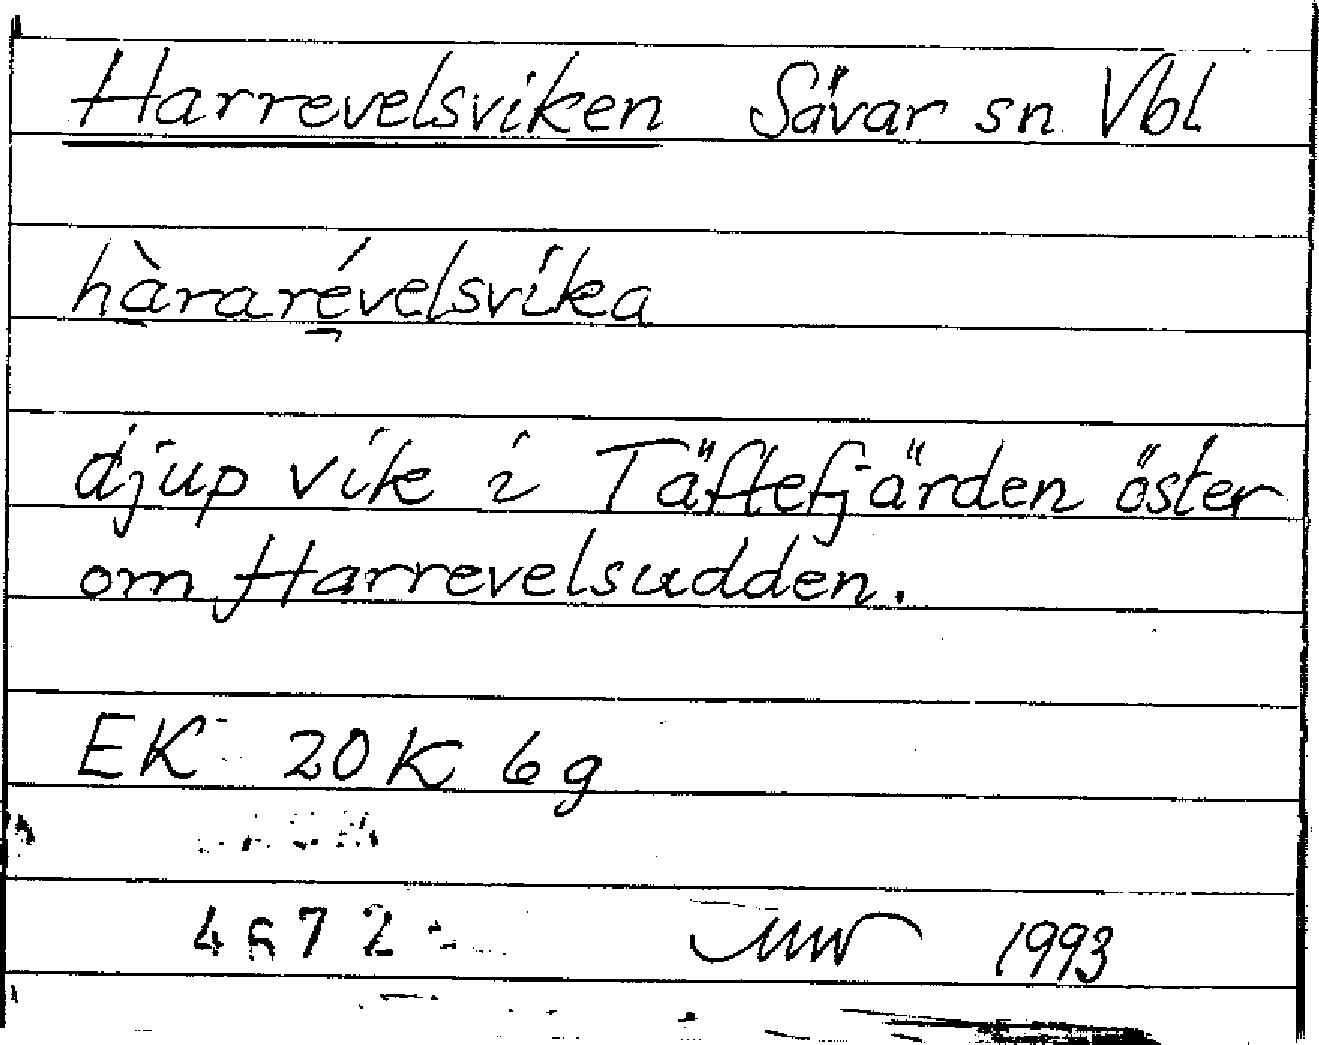 Harrevelsviken Sävar sn Vbl
hàrarévelsvika
djup vik i Täftefjärden öster
om Harrevelsudden.
EK 20K 6g
4672
1993